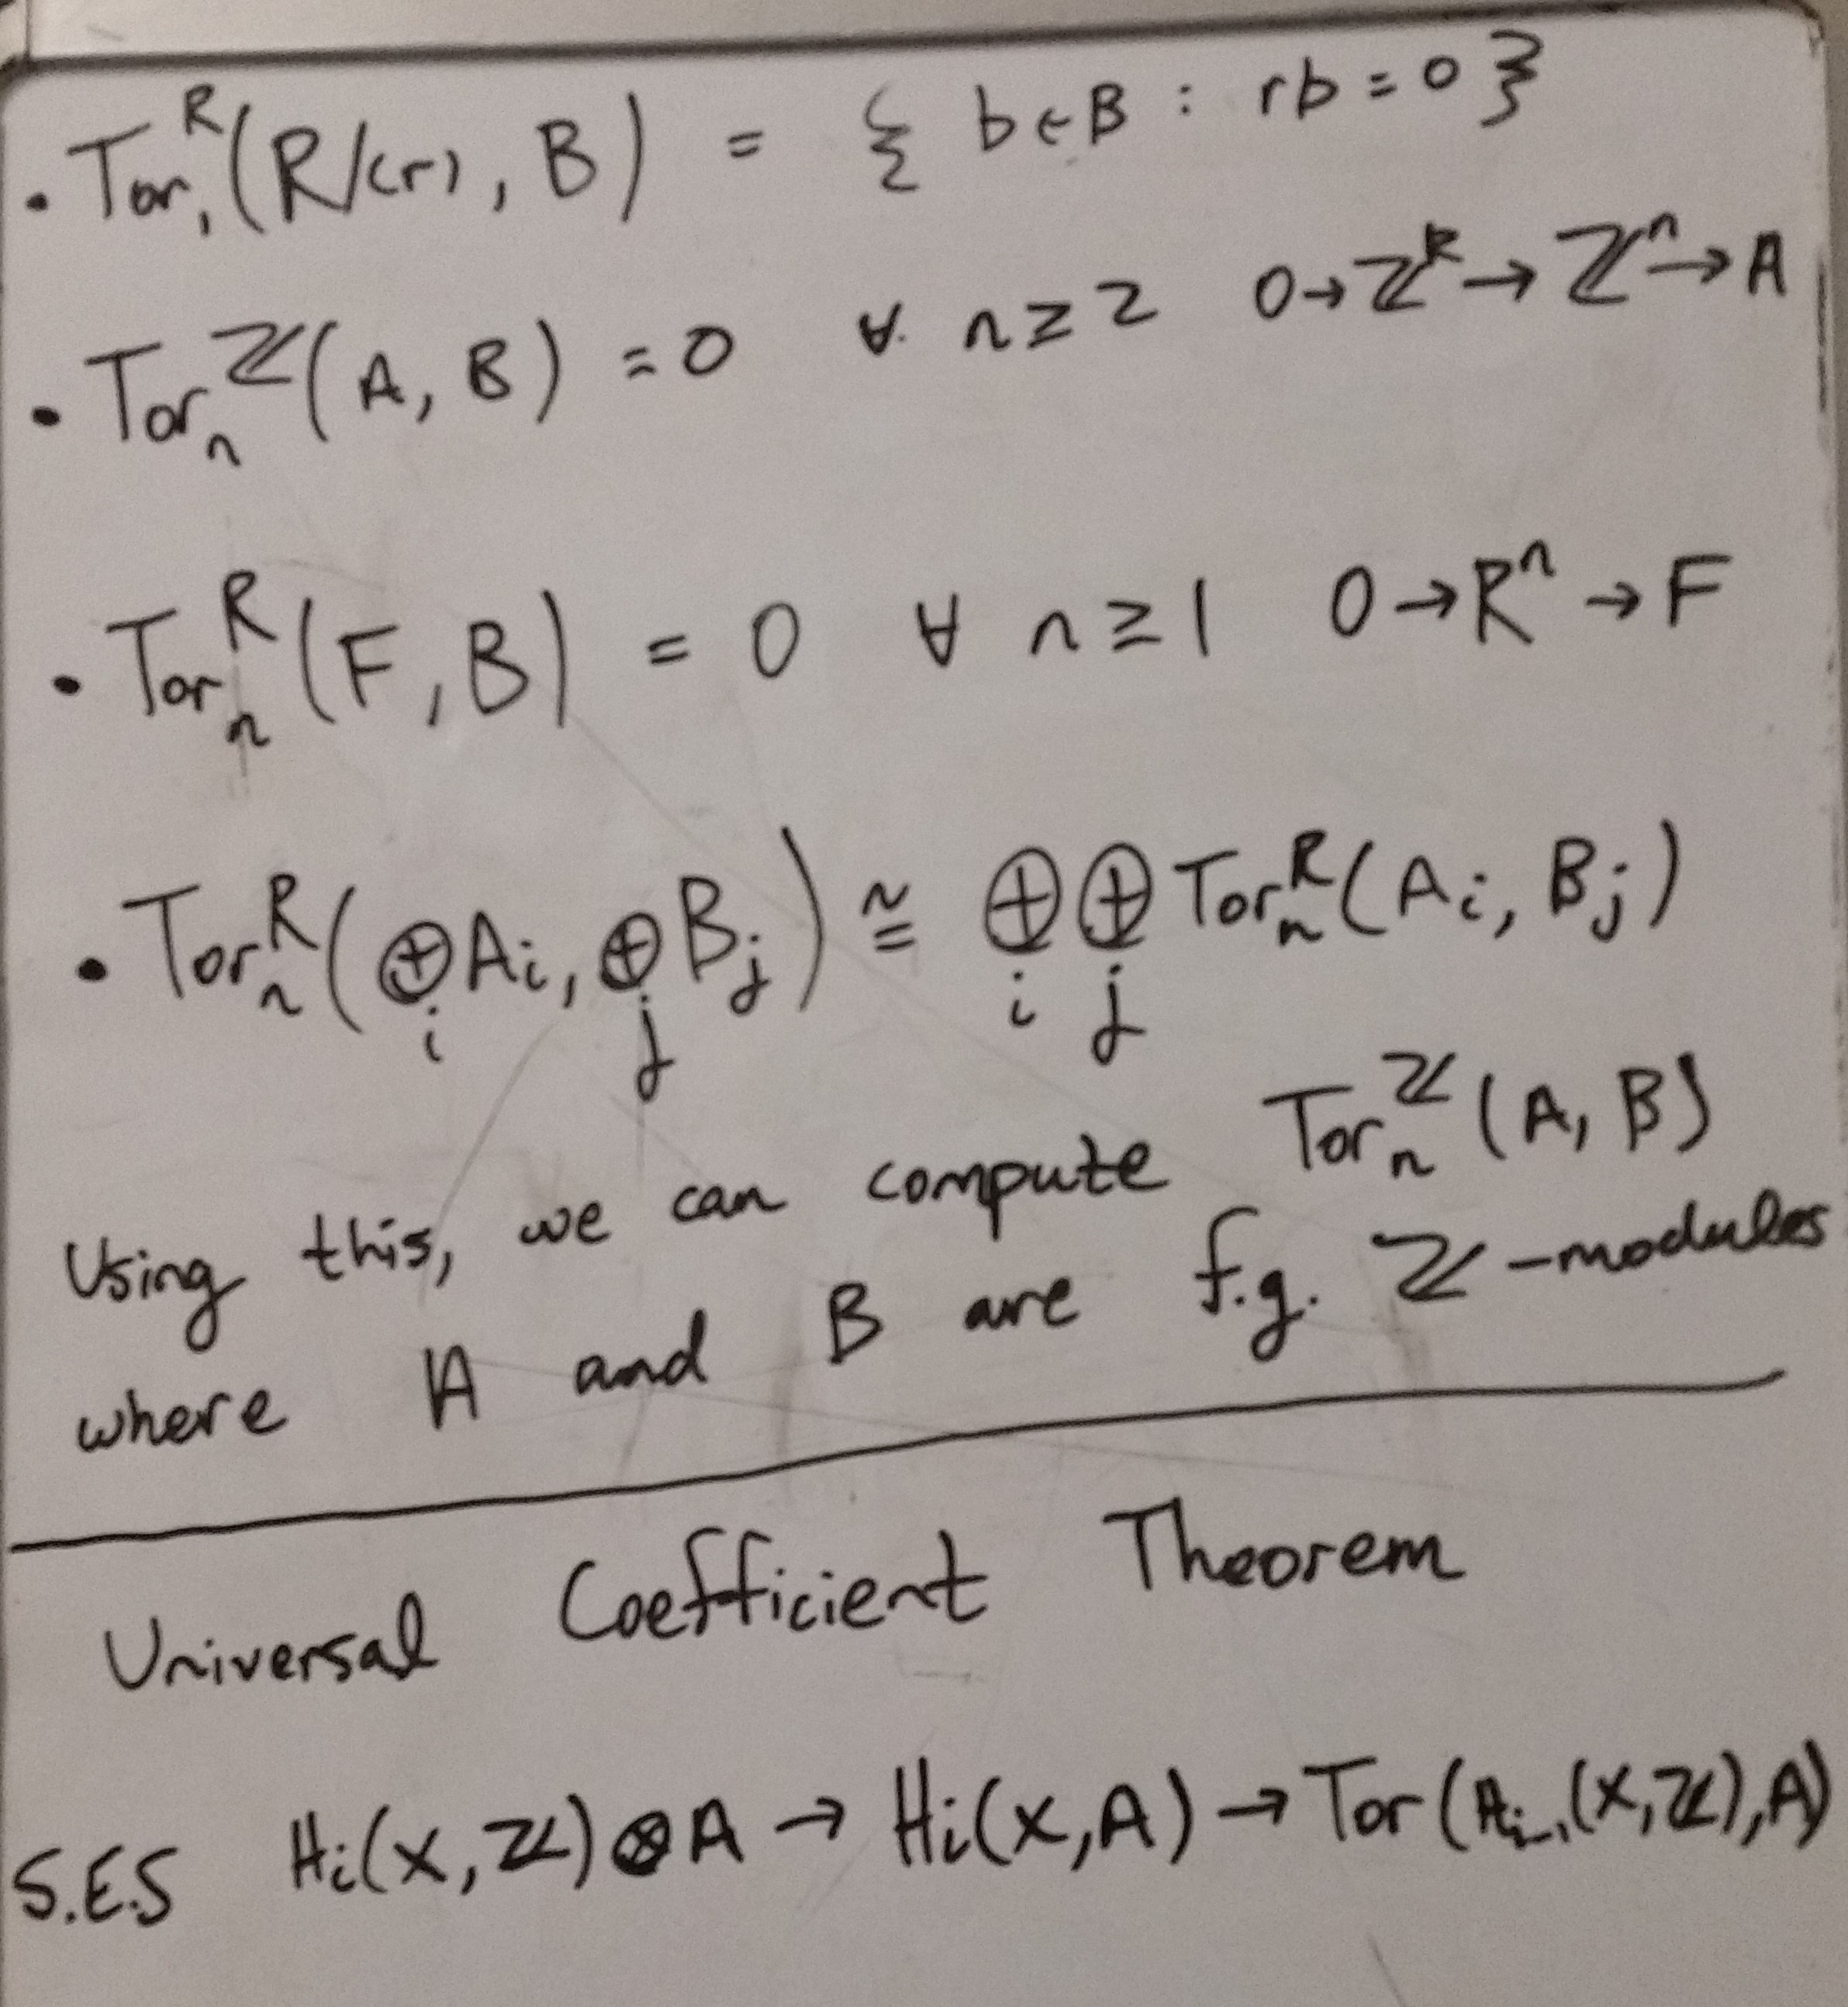 • Tor₁ᴿ(R/(r), B) = { b ∈ B : rb = 0 }
• Torₙ^ℤ(A, B) = 0 ∀ n ≥ 2 0 → ℤᵏ → ℤⁿ → A
• Torₙᴿ(F, B) = 0 ∀ n ≥ 1 0 → Rⁿ → F
• Torₙᴿ(⊕_i A_i, ⊕_j B_j) ≅ ⊕_i ⊕_j Torₙᴿ(A_i, B_j)
Using this, we can compute Torₙ^ℤ(A, B)
where A and B are f.g. ℤ-modules
Universal Coefficient Theorem
S.E.S H_i(X, ℤ) ⊗ A → H_i(X, A) → Tor(H_{i-1}(X, ℤ), A)